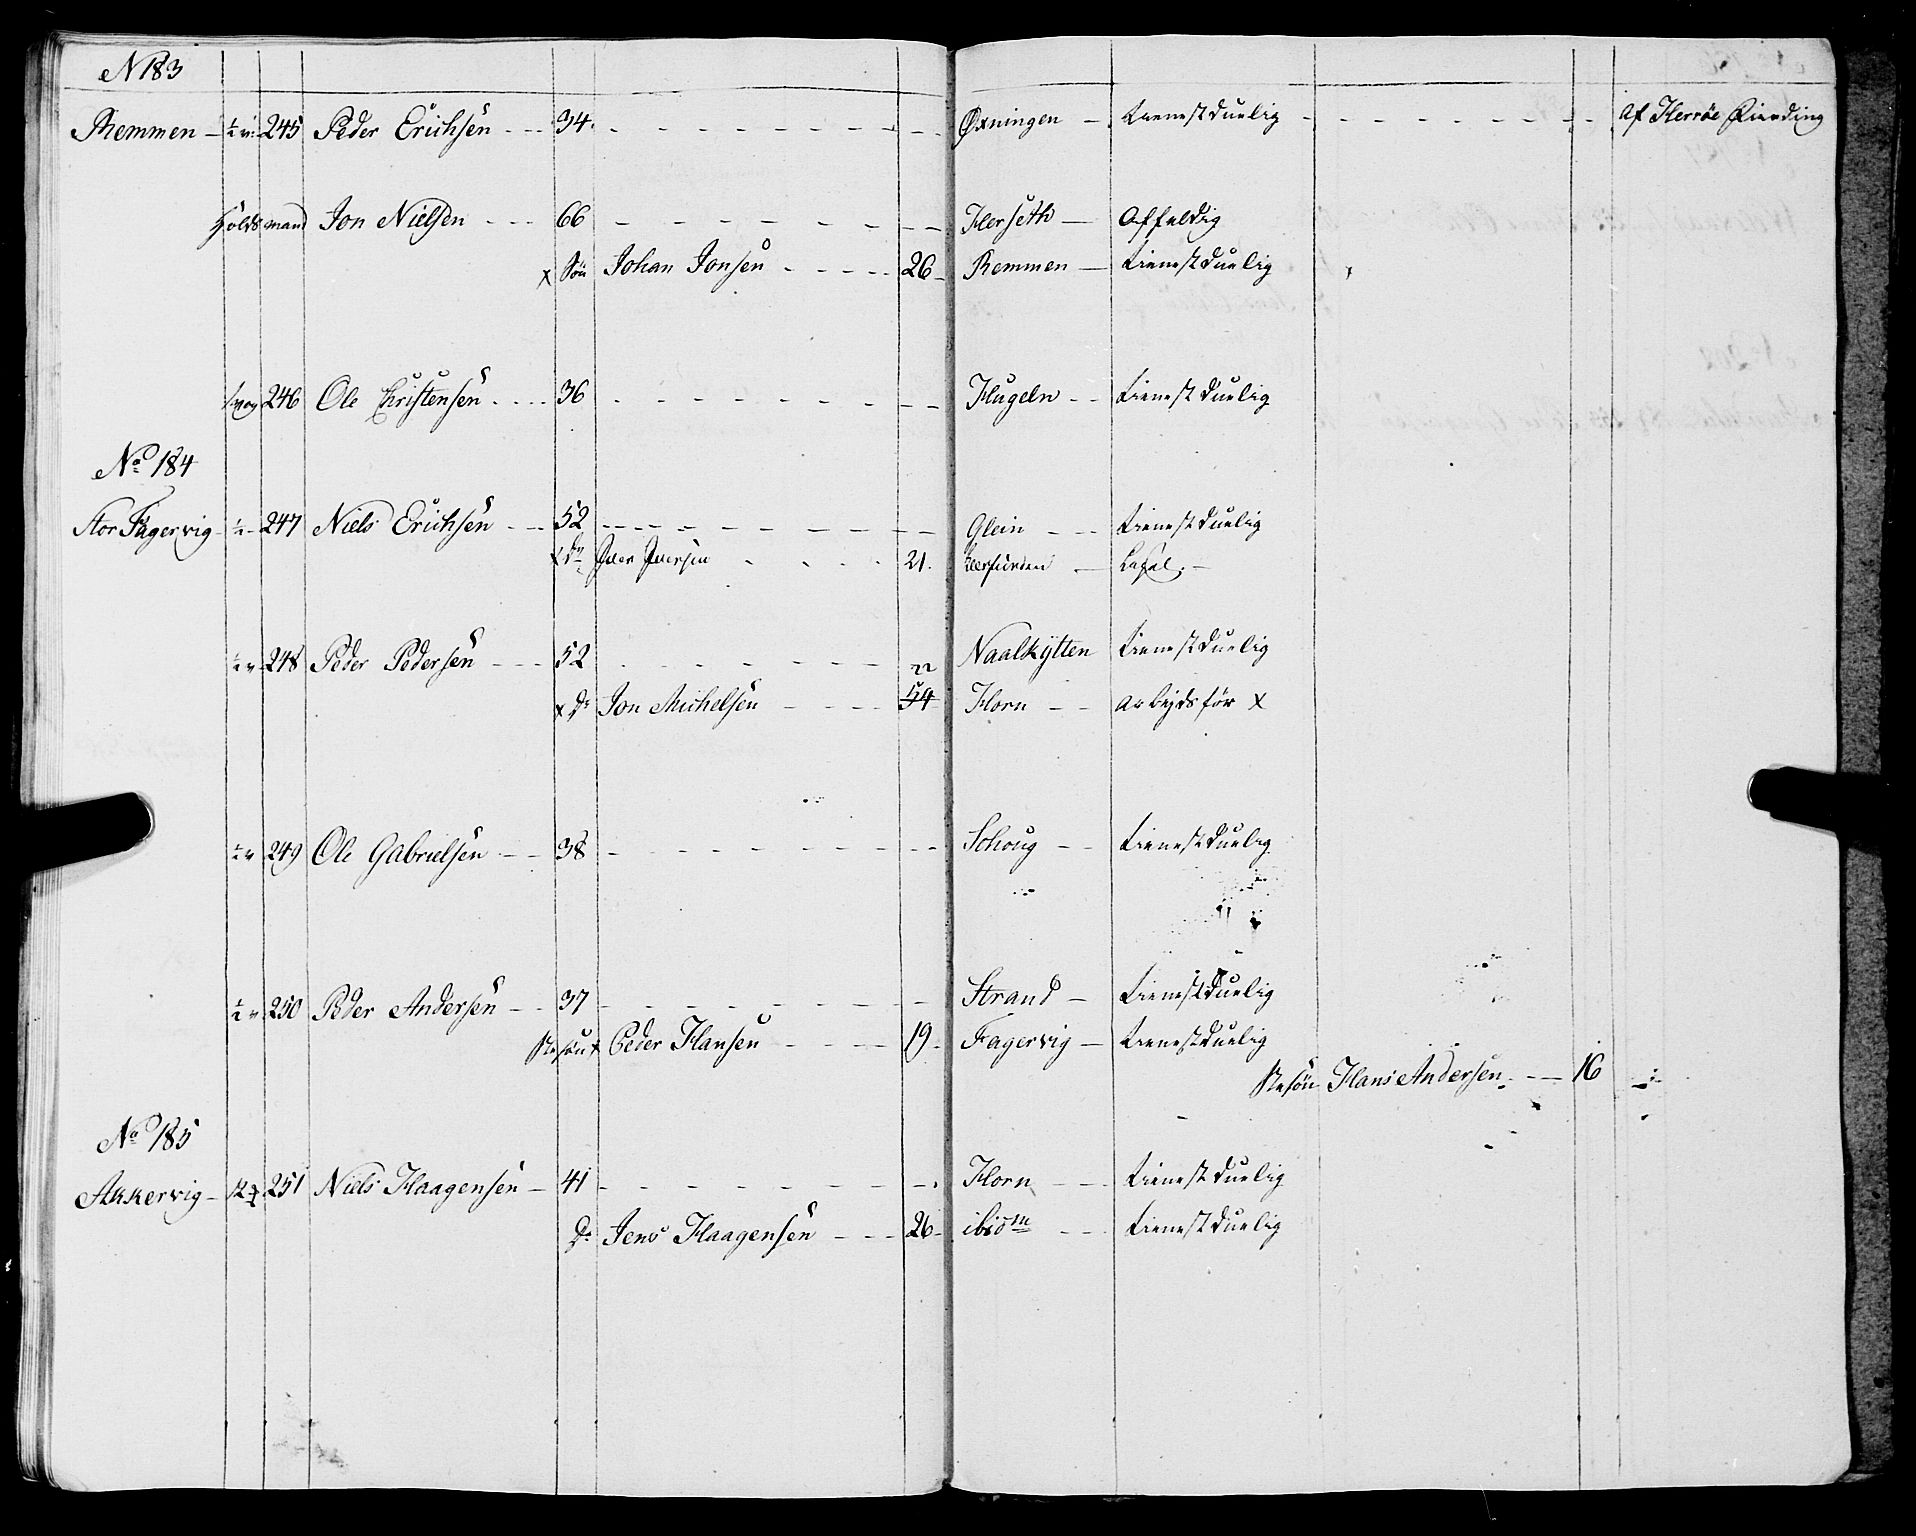 N 183
Remmen - ½ v: 245 Peder Erichsen - - - 34. Øxningen - tienestduelig - - - Af Herrøe Fierding
Holdsmand Jon Nielsen - - - 66 Herseth - Affeldig
x Søn Johan Jonsen - - - 26 - Remmen - tienestduelig
246 Ole Christensen - - - 36 Flugeln - - tienestduelig
No 184
Stor Fagervig - ½ - 247 Niels Erichsen - - - 52 Glein - - tienestduelig
x Do Iver Iversen 21.
½ v 248 Peder Pedersen - - - 52 Naalkytten tienestduelig
22
x Do Jon Michelsen - - - 54 Horn - - arbejdsfør x
½ v 249 Ole Gabrielsen - - 38 Schoug - - tienestduelig
½ v 250 Peder Andersen - - 37 Strand - tienestduelig
Stesøn x Peder Hansen - - - 19 - Fagervig - tienestduelig
Stesøn Hans Andersen - - 16
No 185
Akkervig - 251 Niels Haagensen - 41 Horn - - tienestduelig
Do Jens Haagensen - - - 26 - ibidm - - tienestduelig